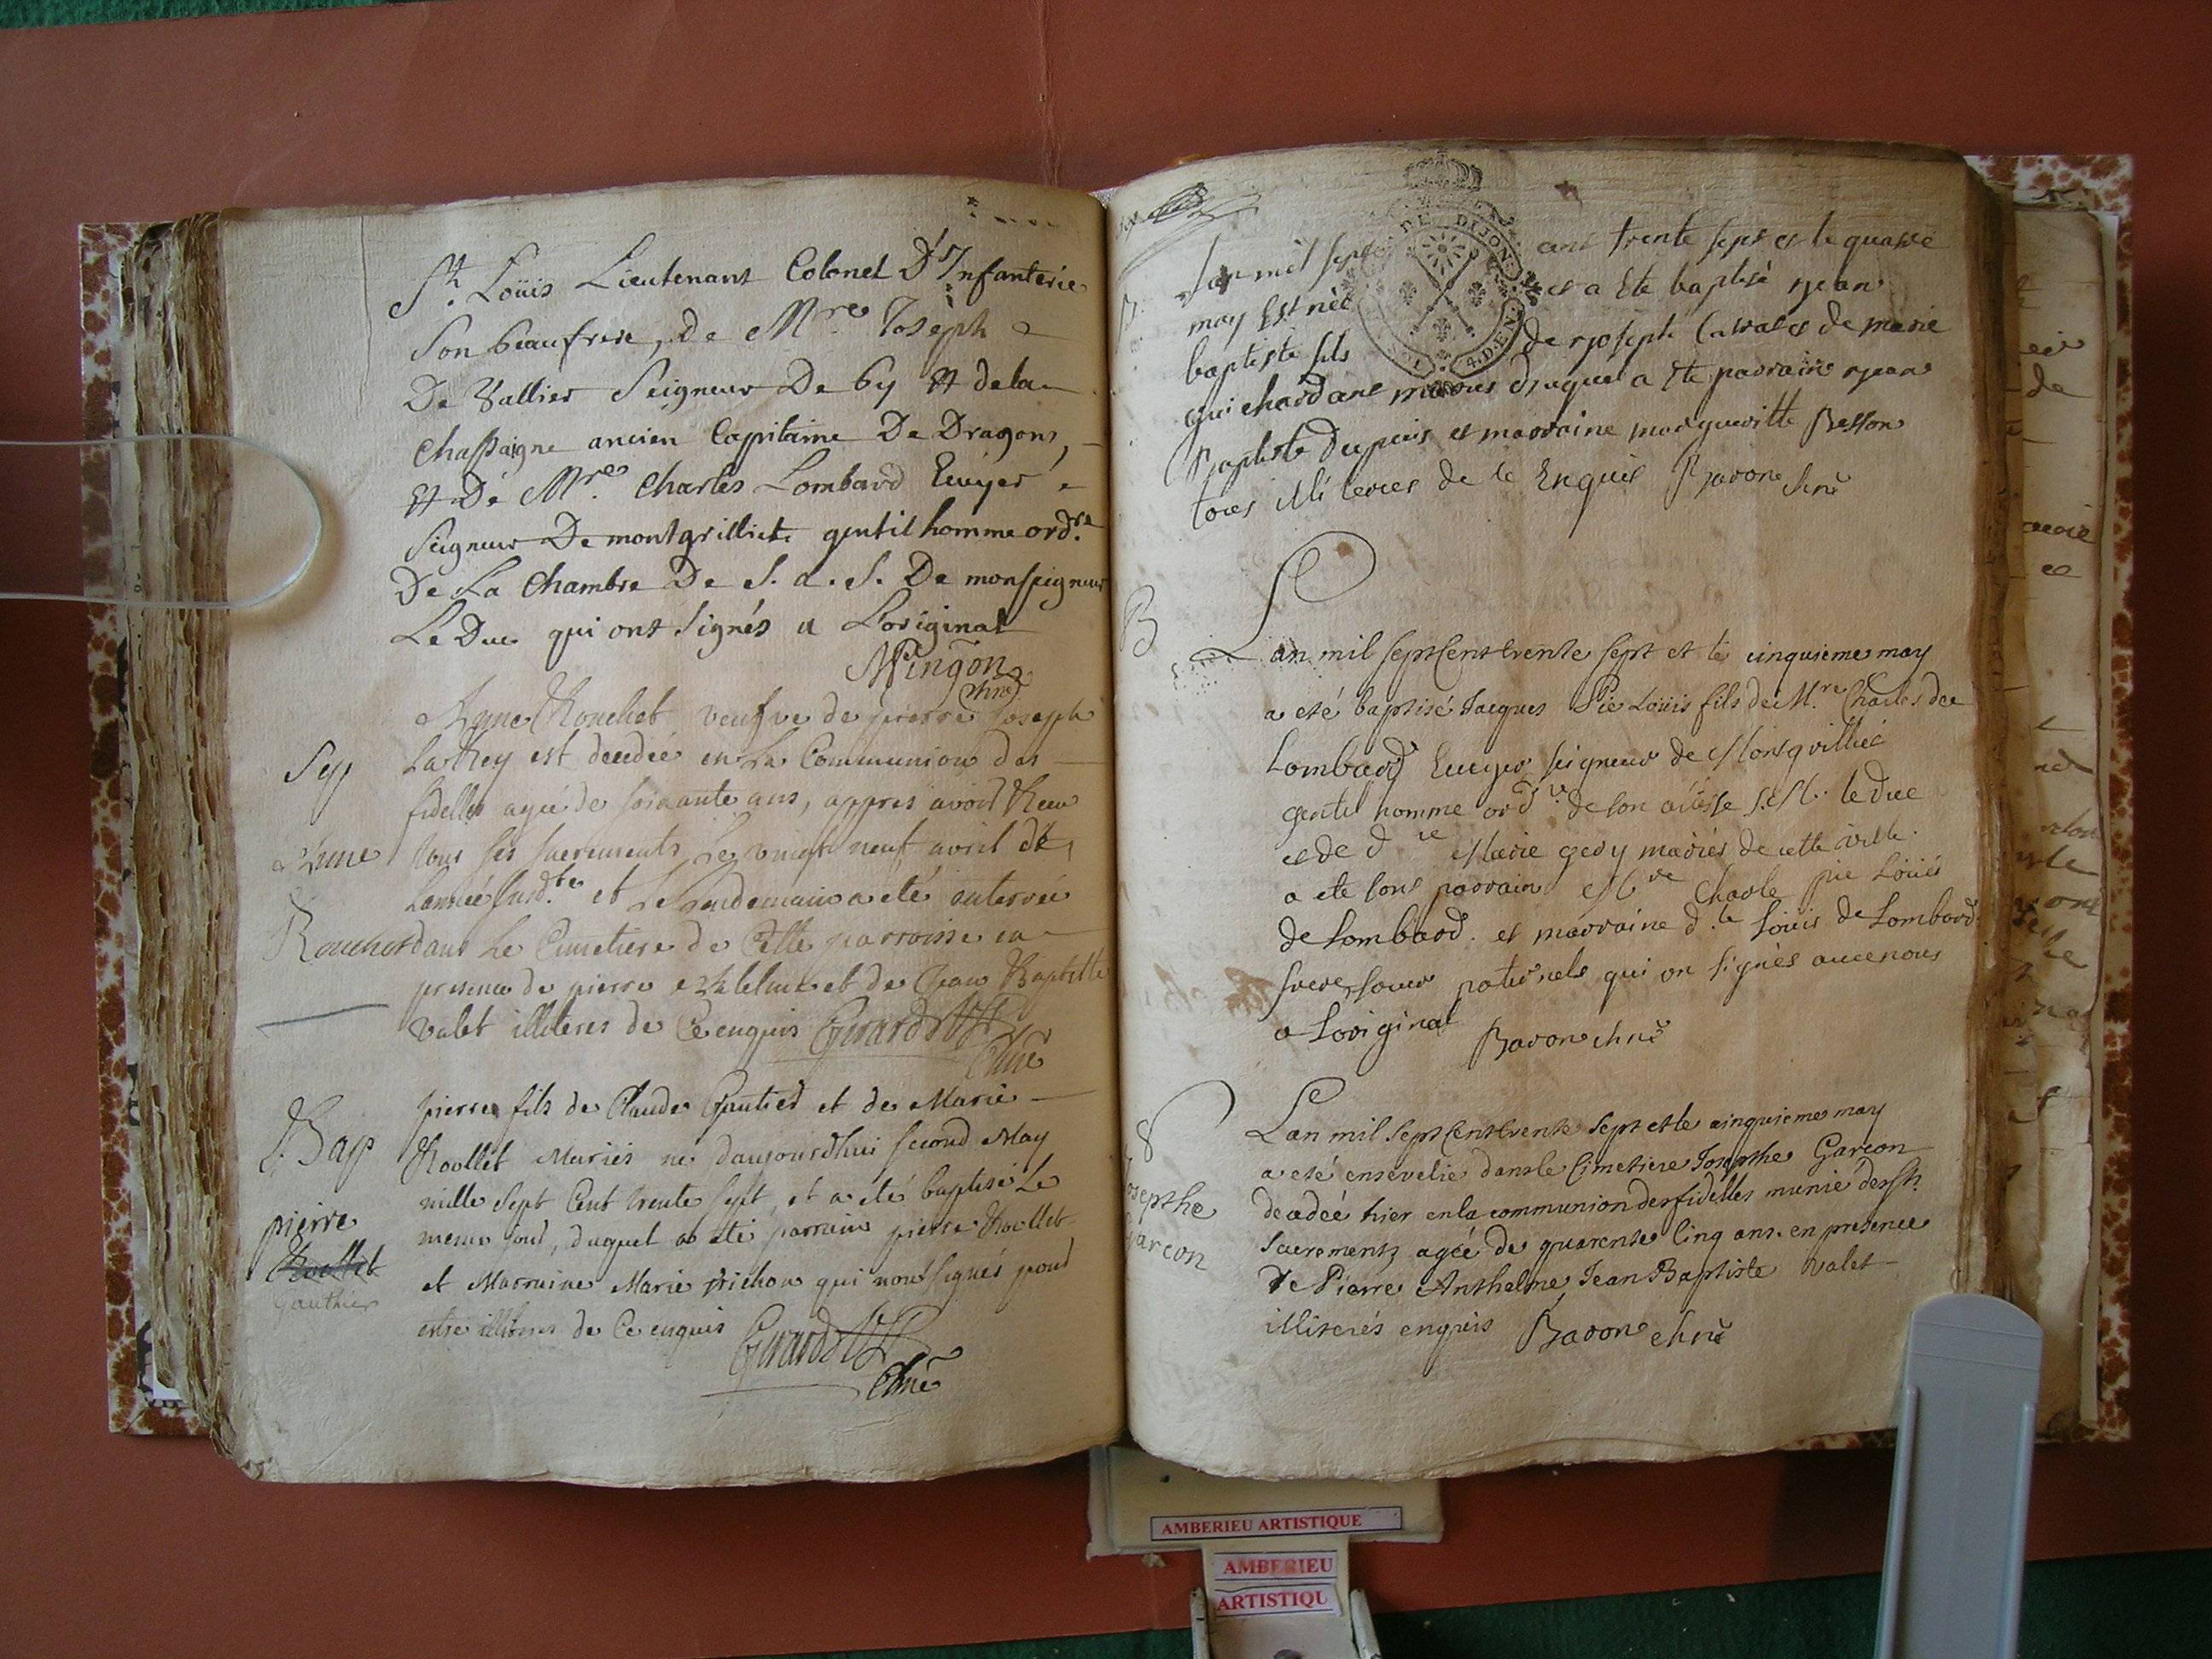 St. Loüis Lieutenant Colonel D'Infanterie
Son beaufrere, De Mre. Joseph
De Vallier Seigneur De by Et dela
Chassaigne ancien Capitaine De Dragons,
Et De Mre. Charles Lombard Ecüyer
Seigneur De montgrilliet gentilhomme ordre.
De La Chambre De S. a. S. De monseigneur
Le Duc qui ont Signés a L'original
Mingon
chne
Sep
Anne
Rouchet
Anne Rouchet veufve de pierre Joseph
LaRey est decedée en La Communion des
fidelles agée de soixante ans, appres avoir Receu
tous ses sacrements Le vingt neuf avril de
Lannée susdte. et Le Lendemain a été enterrée
dans Le Cimetiere de Cette parroisse en
presence de pierre et de Jean Baptiste
valet illiteres de Ce enquis Girard
Chne
Bap
pierre
Roollet
Gauthier
pierre fils de Claude Gautier et de Marie
Roollet Mariés né daujourdhui second May
mille Sept Cent trente Sept, et a été baptisé Le
meme jour, duquel a été parrain pierre Roollet
et Marraine Marie trichon qui nont signés pour
estre illiteres de Ce enquis Girard
Chne
DE DIJON
4.D.EN
Lan mil sept cent trente sept et le quatre
may Est née et a Ete baptisé Jean
baptiste fils de Joseph et de marie
guichardant mariés Duquel a Ete parrain Jean
Baptiste Dupuis et marraine margueritte Besson
tous illiteres de ce Enquis Baron chne
B
Lan mil sept Cent trente sept et le cinquieme may
a eté baptisé Jacques Pie Loüis fils de Mre Charles de
Lombard Ecuyer seigneur de Montgrillié
gentil homme ordre de son altesse S. M. le duc
et de dle Marie gedy mariés de cette ville.
a ete sont parrain Mre Charle pie Loüis
de Lombard. et marraine d.le Loüis de Lombard
frere, soeur paternels qui on signés avec nous
a Loriginal Baron chne
S
Josepthe
Garcon
Lan mil sept Cent trente sept et le cinquieme may
a eté ensevelie dans le Cimetiere Josepthe Garcon
decedée hier en la communion des fidelles munie des sts.
sacrements agée de quarente Cinq ans. en presence
de Pierre Anthelme, Jean Baptiste valet
illiterés enquis Baron chne
AMBERIEU ARTISTIQUE
AMBERIEU
ARTISTIQU